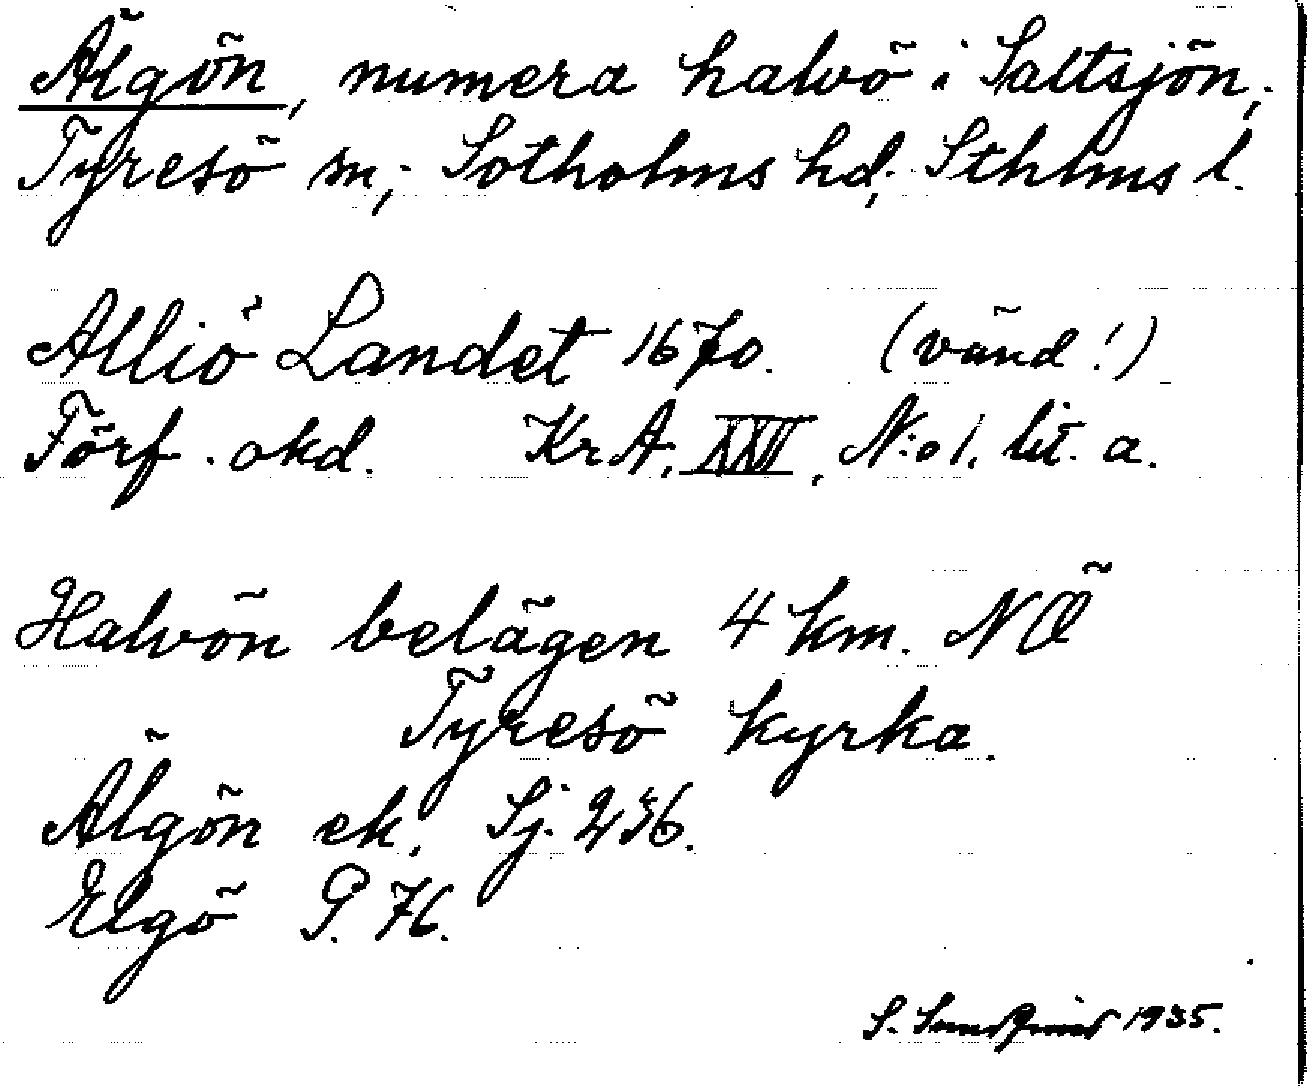 Älgön, numera halvö i Saltsjön,
Tyresö sn, Sotholms hd, Sthlms l.
Alliö Landet 1670. (vänd!)
Förf. okd. KrA, XXVI, N:o 1, lit. a.
Halvön belägen 4 km. NÖ
Tyresö kyrka.
Älgön ek. Sj. 236.
Elgö G. 76.
S. 1935.